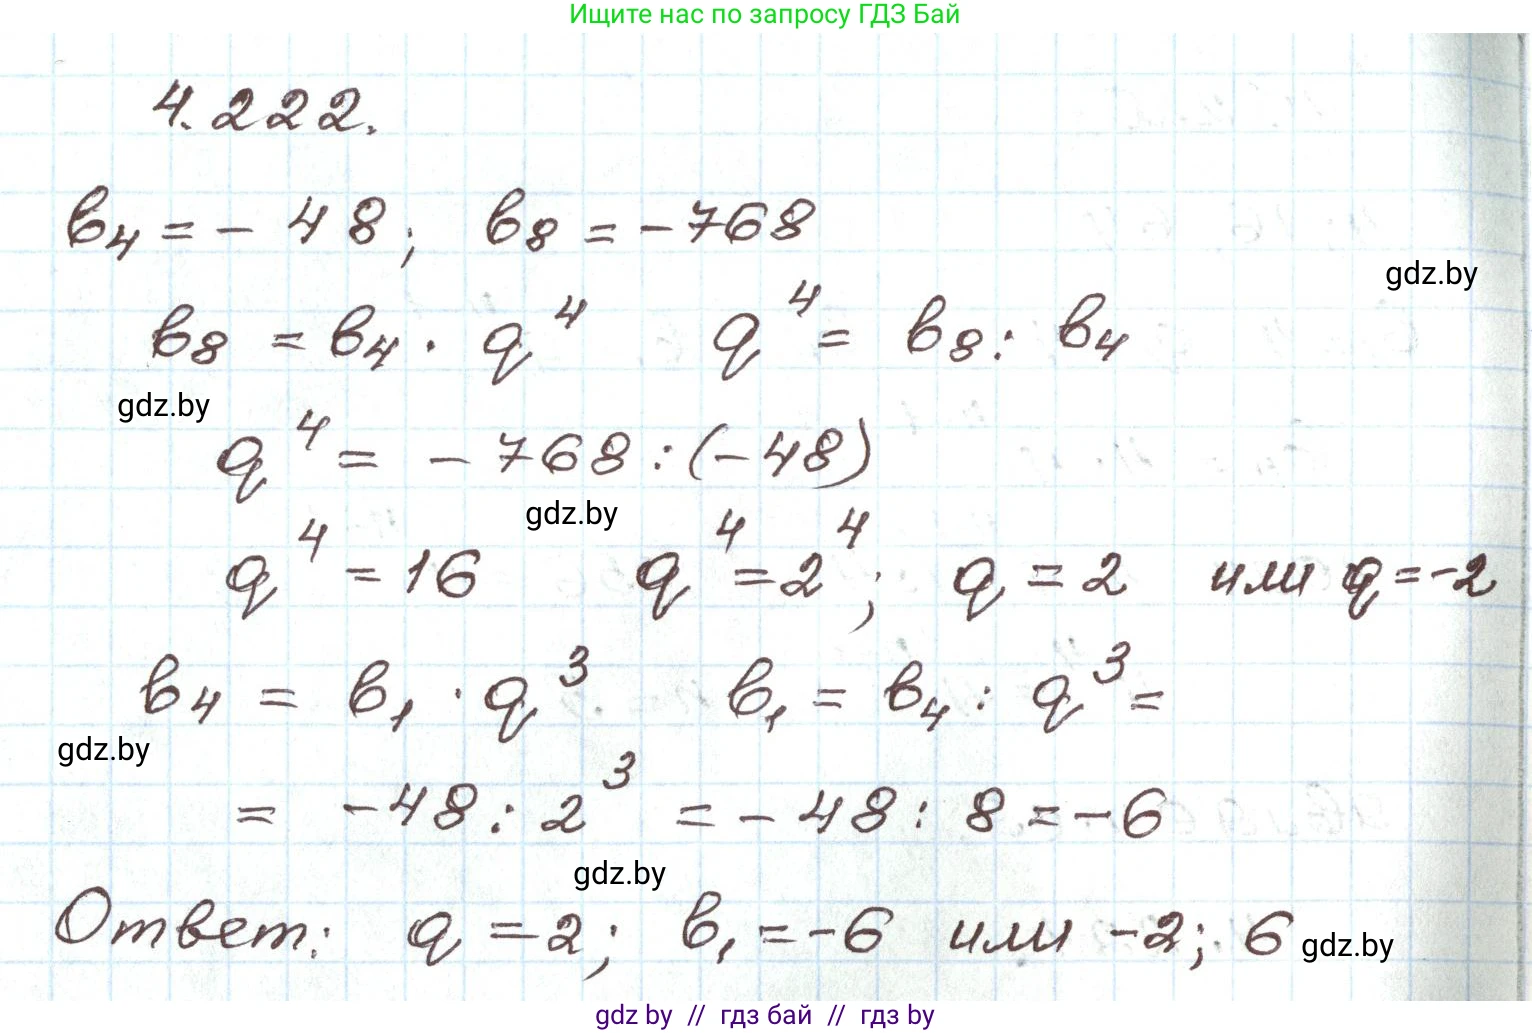 Ищите нас по запросу ГДЗ Бай
4.222.
в₄ = - 48; в₈ = -768
gdz.by
в₈ = в₄ · q⁴ q⁴ = в₈ : в₄
gdz.by
q⁴ = - 768 : (-48)
gdz.by
q⁴ = 16 q⁴ = 2⁴; q = 2 или q = -2
в₄ = в₁ · q³ в₁ = в₄ : q³ =
gdz.by
= -48 : 2³ = - 48 : 8 = -6
gdz.by
Ответ: q = 2; в₁ = -6 или -2; 6
gdz.by
gdz by // гдз бай // гдз by